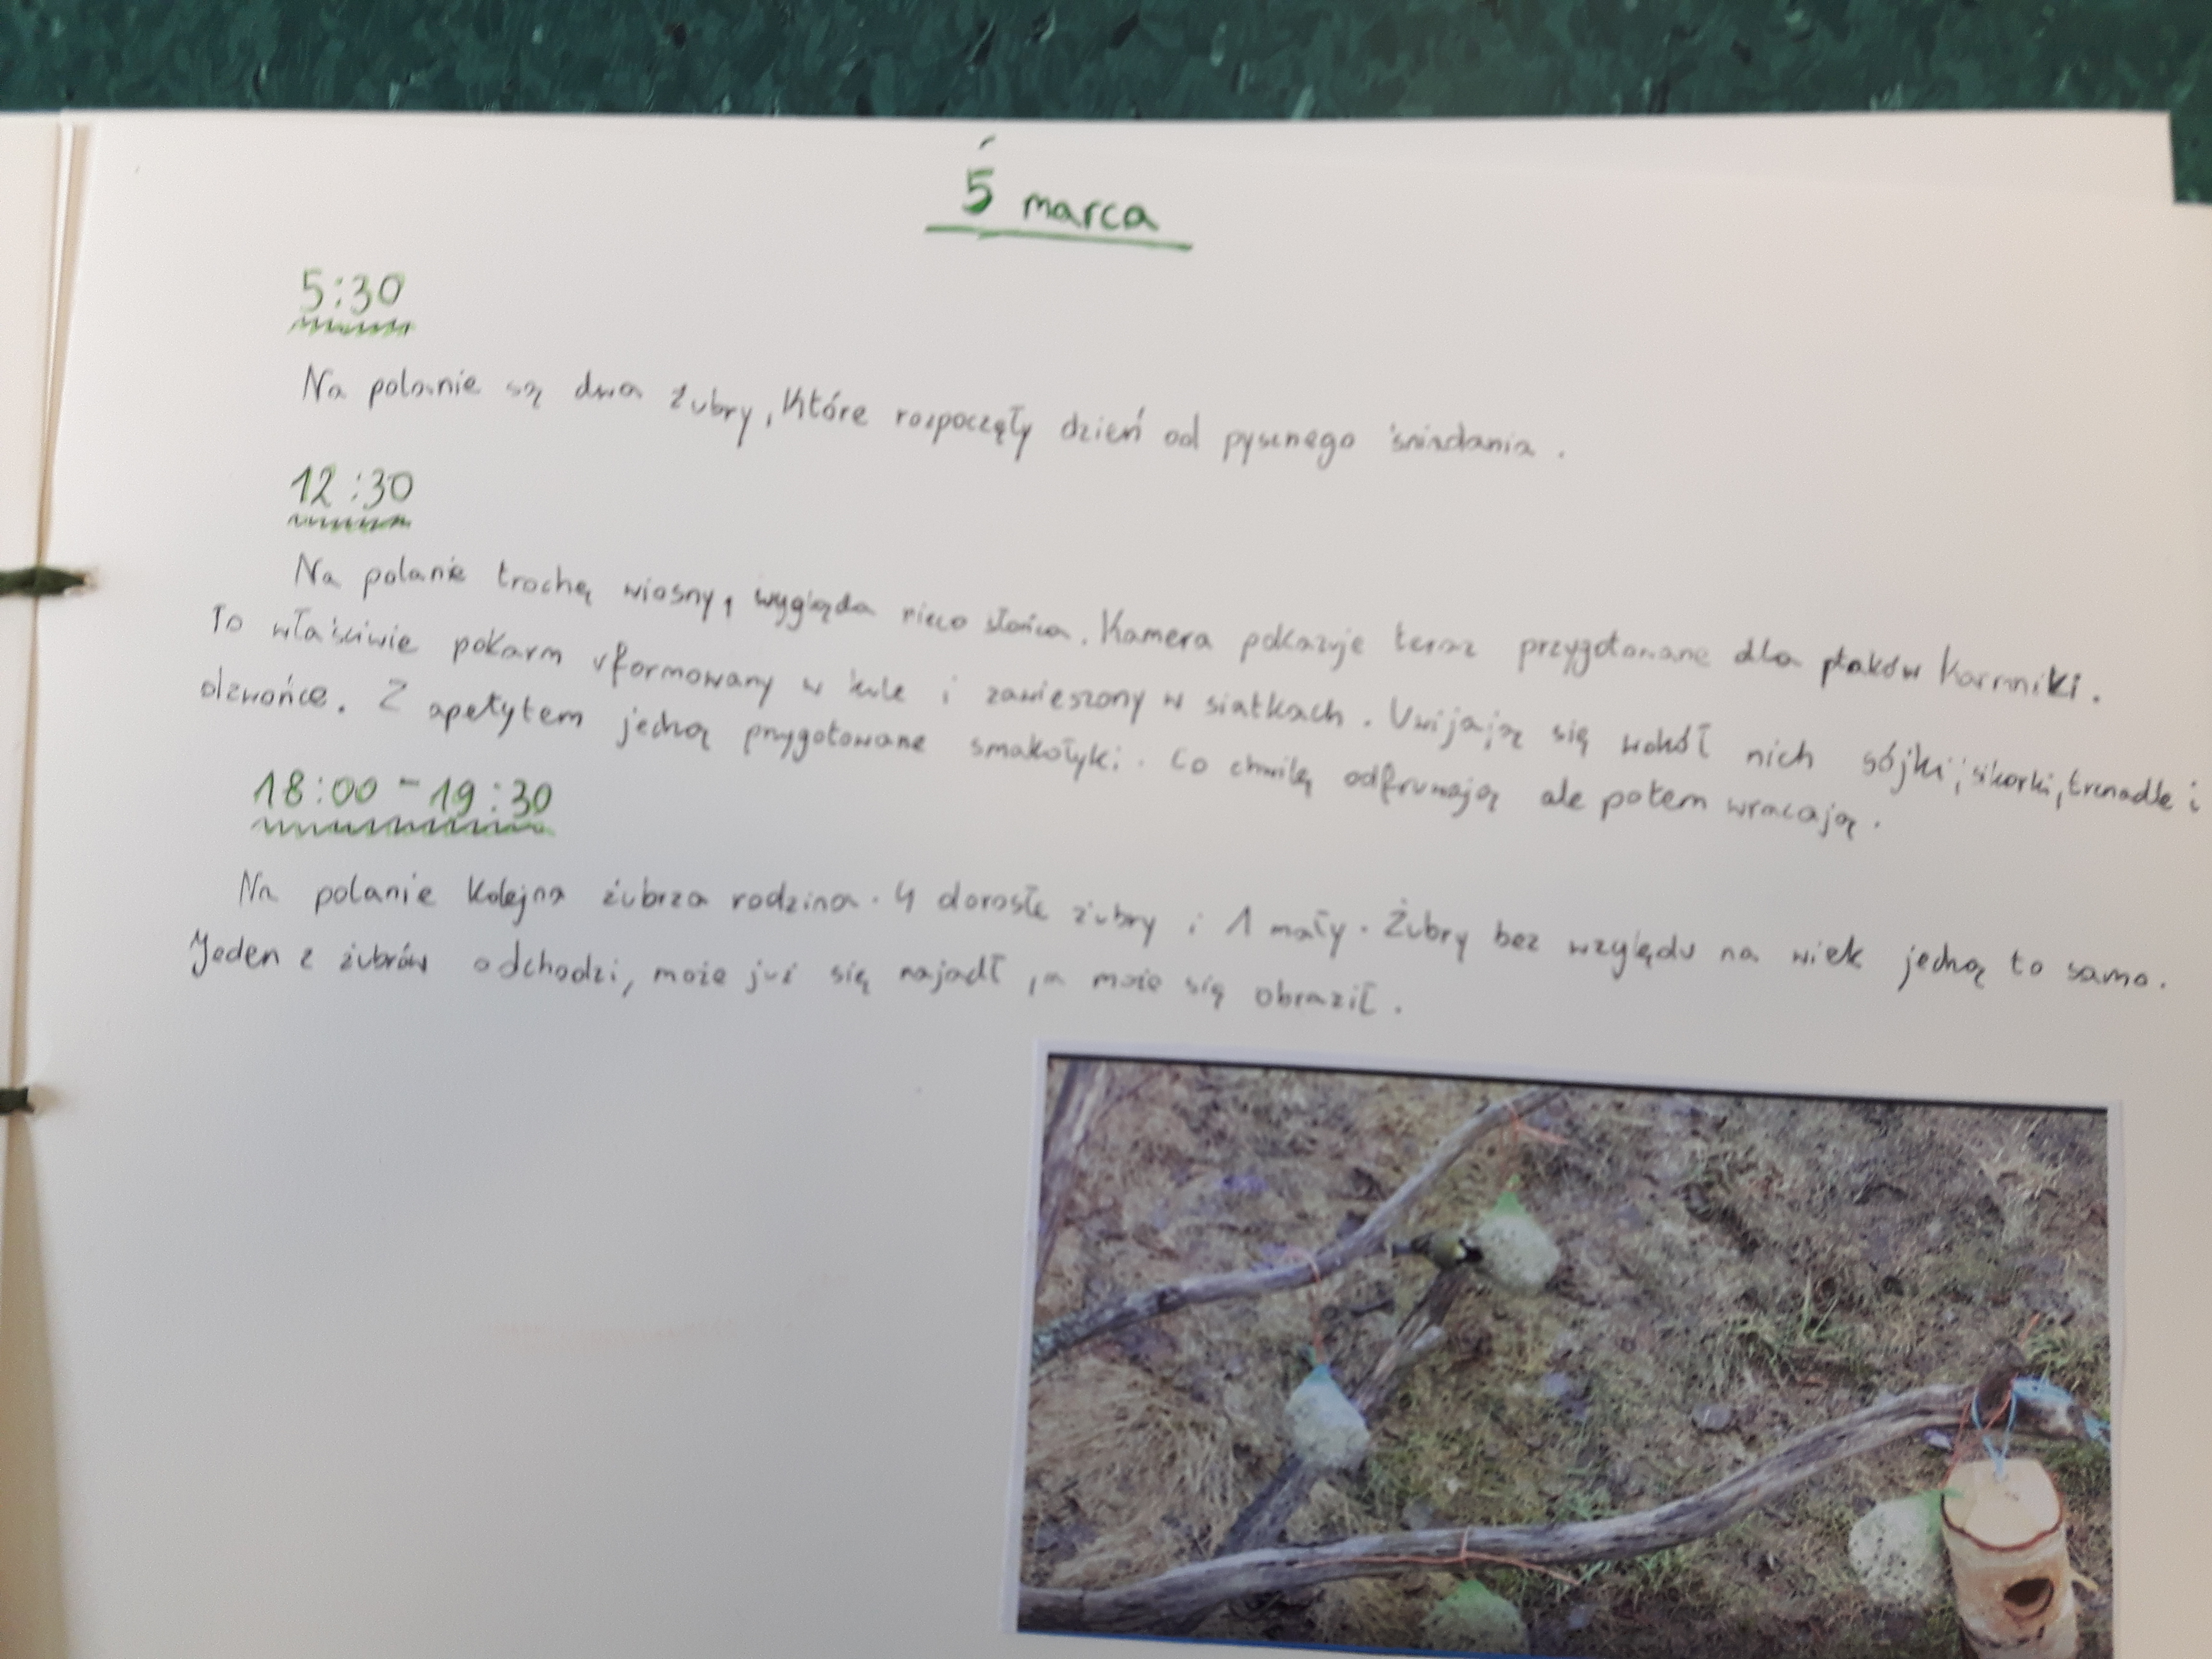 5 marca
5:30
Na polanie są dwa żubry, które rozpoczęły dzień od pysznego śniadania.
12:30
Na polanie trochę wiosny, wygląda nieco słońca. Kamera pokazuje teraz przygotowane dla ptaków karmniki.
To właściwie pokarm uformowany w kule i zawieszony w siatkach. Uwijają się wokół nich sójki, sikorki, trznadle i
dzwońce. Z apetytem jedzą przygotowane smakołyki. Co chwilę odfruwają ale potem wracają.
18:00 - 19:30
Na polanie kolejna żubrza rodzina. 4 dorosłe żubry i 1 mały. Żubry bez względu na wiek jedzą to samo.
Jeden z żubrów odchodzi, może już się najadł, a może się obraził.